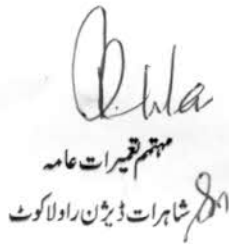 مہتمم تعمیرات عامہ
شاہرات ڈیژن راولاکوٹ